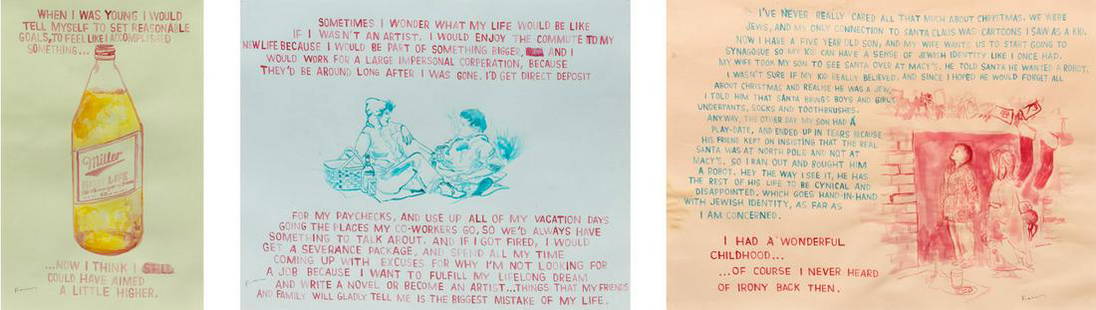 WHEN I WAS YOUNG I WOULD
TELL MYSELF TO SET REASONABLE
GOALS, TO FEEL LIKE I ACCOMPLISHED
SOMETHING...
Miller
HIGH LIFE
...NOW I THINK I
COULD HAVE AIMED
A LITTLE HIGHER.
SOMETIMES I WONDER WHAT MY LIFE WOULD BE LIKE
IF I WASN'T AN ARTIST. I WOULD ENJOY THE COMMUTE TO MY
NEW LIFE BECAUSE I WOULD BE PART OF SOMETHING BIGGER, AND I
WOULD WORK FOR A LARGE IMPERSONAL CORPERATION, BECAUSE
THEY'D BE AROUND LONG AFTER I WAS GONE. I'D GET DIRECT DEPOSIT
FOR MY PAYCHECKS, AND USE UP ALL OF MY VACATION DAYS
GOING THE PLACES MY CO-WORKERS GO, SO WE'D ALWAYS HAVE
SOMETHING TO TALK ABOUT. AND IF I GOT FIRED, I WOULD
GET A SEVERANCE PACKAGE, AND SPEND ALL MY TIME
COMING UP WITH EXCUSES FOR WHY I'M NOT LOOKING FOR
A JOB BECAUSE I WANT TO FULFILL MY LIFELONG DREAM
AND WRITE A NOVEL OR BECOME AN ARTIST...THINGS THAT MY FRIENDS
AND FAMILY WILL GLADLY TELL ME IS THE BIGGEST MISTAKE OF MY LIFE.
I'VE NEVER REALLY CARED ALL THAT MUCH ABOUT CHRISTMAS. WE WERE
JEWS, AND MY ONLY CONNECTION TO SANTA CLAUS WAS CARTOONS I SAW AS A KID.
NOW I HAVE A FIVE YEAR OLD SON, AND MY WIFE WANTS US TO START GOING TO
SYNAGOGUE SO MY KID CAN HAVE A SENSE OF JEWISH IDENTITY LIKE I ONCE HAD.
MY WIFE TOOK MY SON TO SEE SANTA OVER AT MACY'S. HE TOLD SANTA HE WANTED A ROBOT.
I WASN'T SURE IF MY KID REALLY BELIEVED. AND SINCE I HOPED HE WOULD FORGET ALL
ABOUT CHRISTMAS AND REALISE HE WAS A JEW,
I TOLD HIM THAT SANTA BRINGS BOYS AND GIRLS
UNDERPANTS, SOCKS AND TOOTHBRUSHES.
ANYWAY, THE OTHER DAY MY SON HAD A
PLAY-DATE, AND ENDED UP IN TEARS BECAUSE
HIS FRIEND KEPT ON INSISTING THAT THE REAL
SANTA WAS AT NORTH POLE AND NOT AT
MACY'S. SO I RAN OUT AND BOUGHT HIM
A ROBOT. HEY THE WAY I SEE IT, HE HAS
THE REST OF HIS LIFE TO BE CYNICAL AND
DISAPPOINTED. WHICH GOES HAND-IN-HAND
WITH JEWISH IDENTITY, AS FAR AS
I AM CONCERNED.
I HAD A WONDERFUL
CHILDHOOD...
...OF COURSE I NEVER HEARD
OF IRONY BACK THEN.